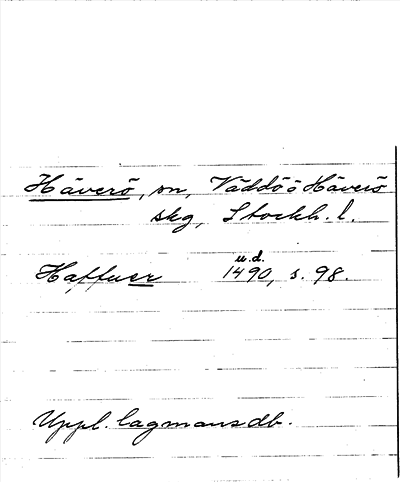 Häverö, sn, Väddö o Häverö
skg, Stockh. l.
Haffuer u.d. 1490, s. 98.
Uppl. lagmansdb.